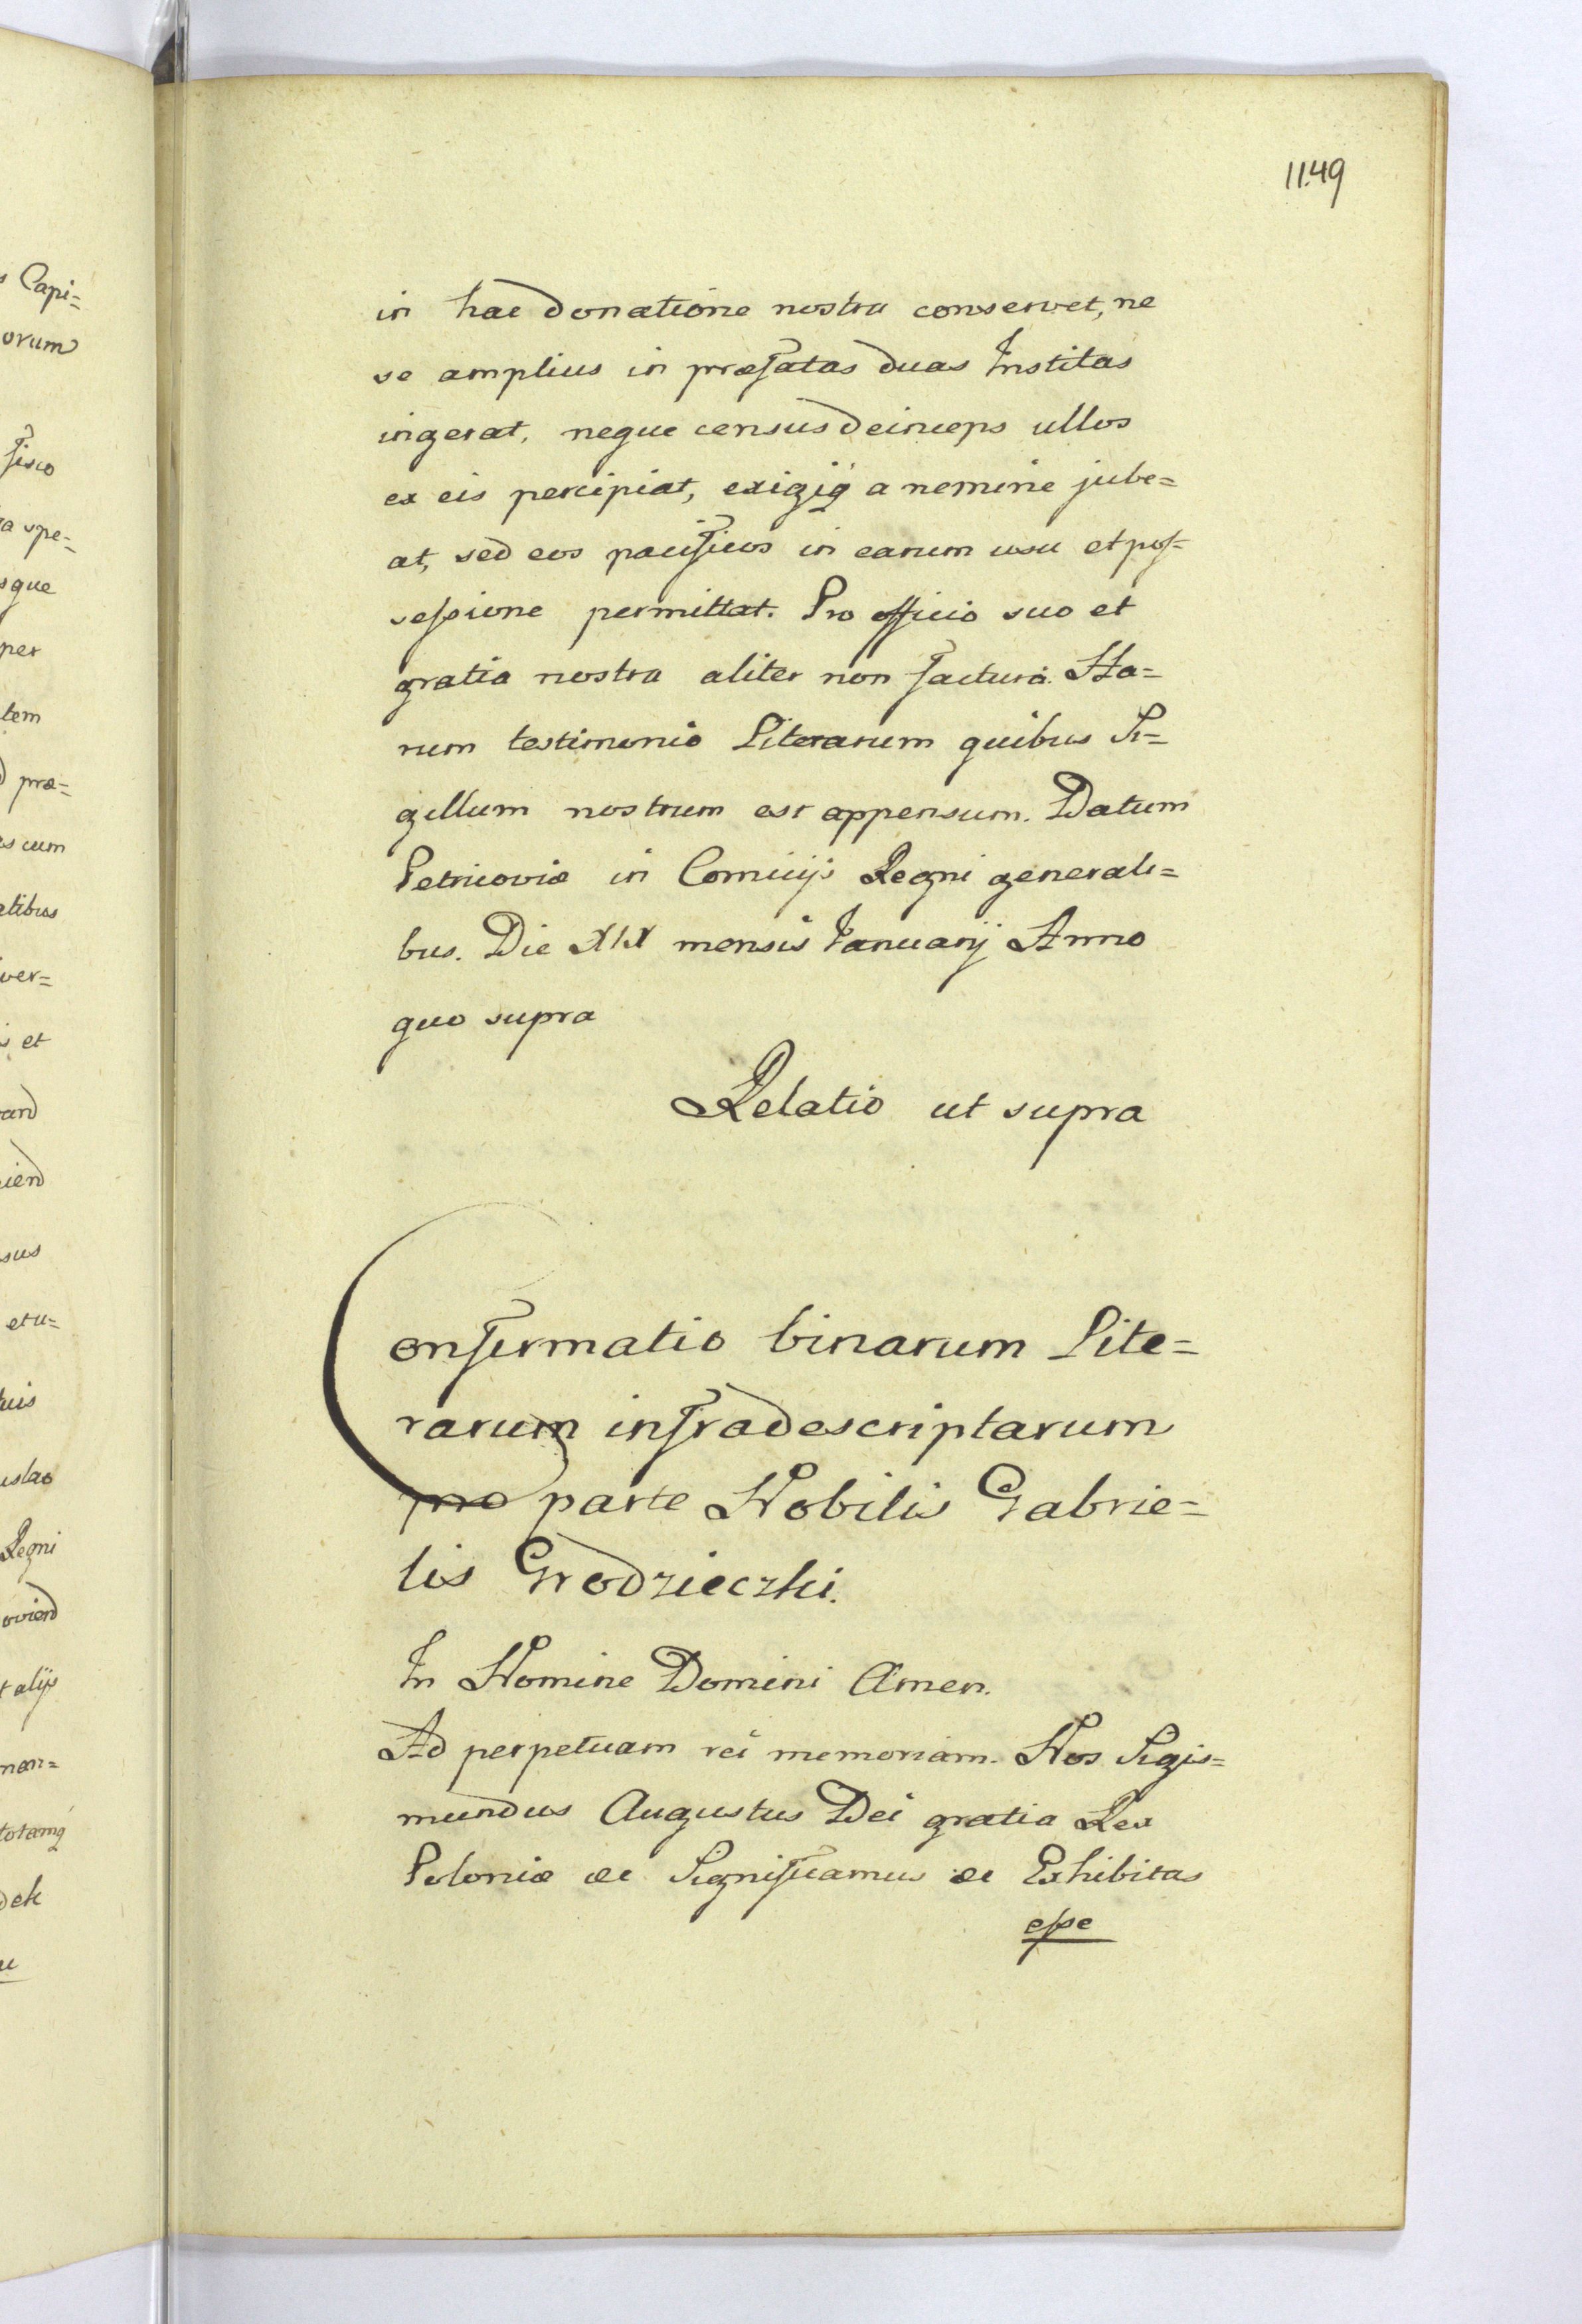 1149
in hac donatione nostra conservet, ne
se amplius in præfatas duas Institas
ingerat, neque census deinceps ullos
ex eis percipiat, exigiq́ a nemine jube=
at, sed eos pacificos in earum usu et pos=
sessione permittat. Pro officio suo et
gratia nostra aliter non factura. Ha=
rum testimonio Literarum quibus Si=
gillum nostrum est appensum. Datum
Petricoviæ in Comicijs Regni generali=
bus. Die XIX mensis Januarij Anno
quo supra
Relatio ut supra
Confirmatio binarum Lite=
rarum infradescriptarum
pro parte Nobilis Gabrie=
lis Grodzieczki.
In Nomine Domini Amen.
Ad perpetuam rei memoriam. Nos Sigis=
mundus Augustus Dei gratia Rex
Poloniæ &c Significamus &c Exhibitas
esse
s Capi=
orum
fisco
ra spe=
sque
per
tem
d præ=
es cum
atibus
ver=
s et
rand
iend
sus
et u=
tuis
islao
Regni
oviend
t alijs
man=
totamq́
dek